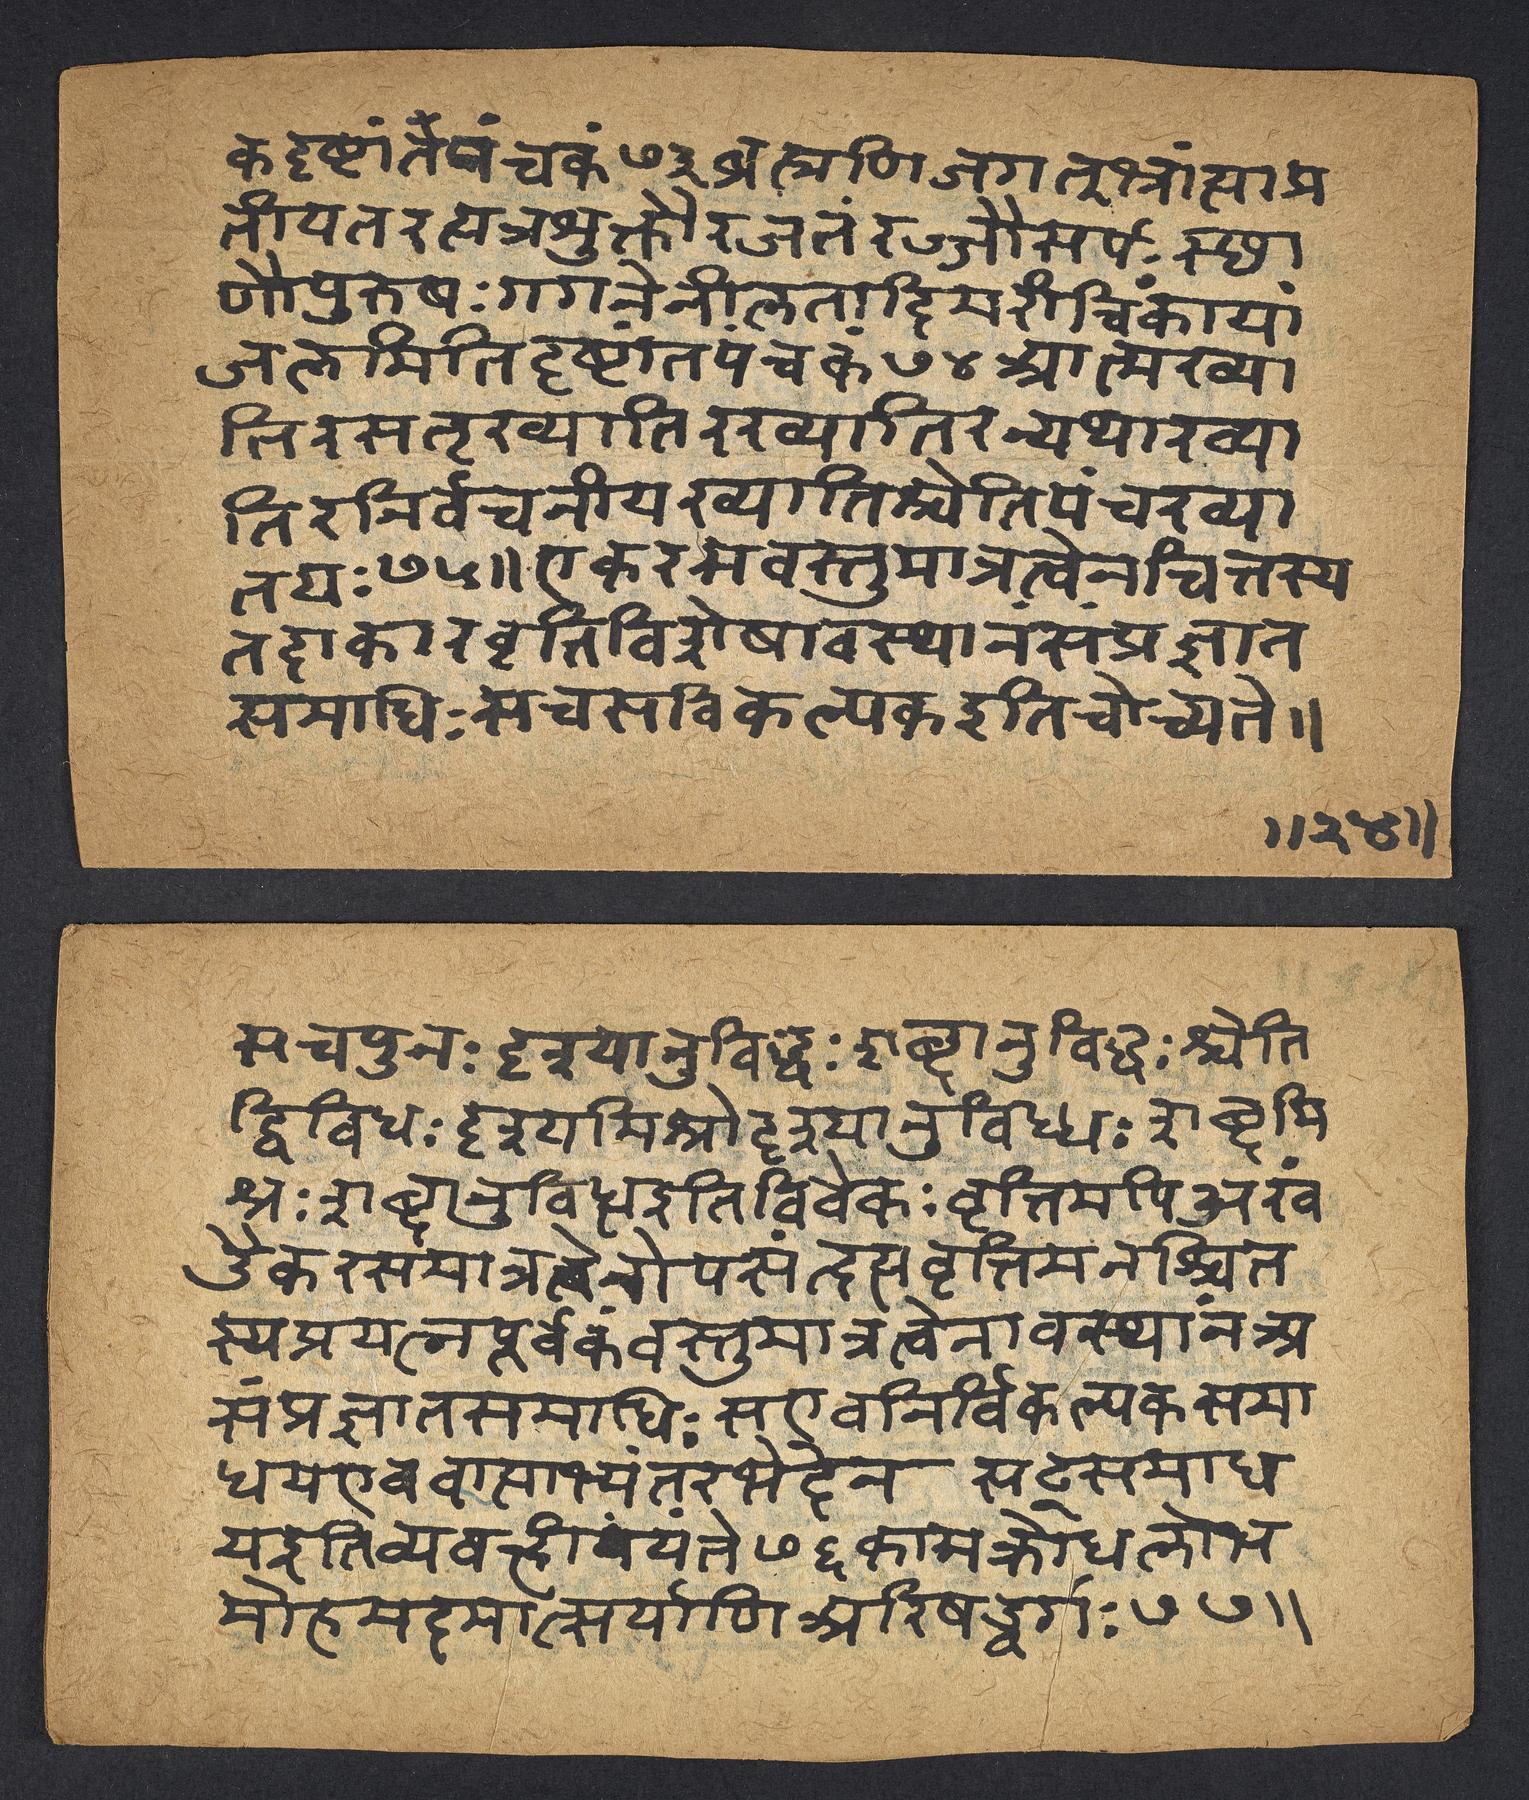 कदृष्टांतपंचकं ७३ ब्रह्मणि जगत्भ्रांत्या प्र
तीयत इत्यत्र शुक्तौ रजतं रज्जौ सर्पः स्था
णौ पुरुषः गगने नीलतादि मरीचिकायां
जलमिति दृष्टांतपंचकं ७४ आत्मख्या
तिरसत्ख्यातिरख्यातिरन्यथाख्या
तिरनिर्वचनीयख्यातिश्चेति पंचख्या
तयः ७५॥ एकरसवस्तुमात्रत्वेन चित्तस्य
तदाकारवृत्तिविशेषावस्थानं संप्रज्ञात
समाधिः स च सविकल्पक इति चोच्यते॥
॥२४॥
स च पुनः दृश्यानुविद्धः शब्दानुविद्धः श्चेति
द्विविधः दृश्यमिश्रो दृश्यानुविध्धः शब्दमि
श्रः शब्दानुविध्ध इति विवेकः वृत्तिमपि अखं
डैकरसमात्रत्वेनोपसंहृत्य वृत्तिमनश्चित
स्य प्रयत्नपूर्वकं वस्तुमात्रत्वेनावस्थानं अ
संप्रज्ञातसमाधिः स एव निर्विकल्पकसमा
धय एव बाह्याभ्यंतरभेदेन षट्समाध
य इति व्यवह्रीयंते ७६ कामक्रोधलोभ
मोहमदमात्सर्याणि अरिषड्वर्गः ७७॥